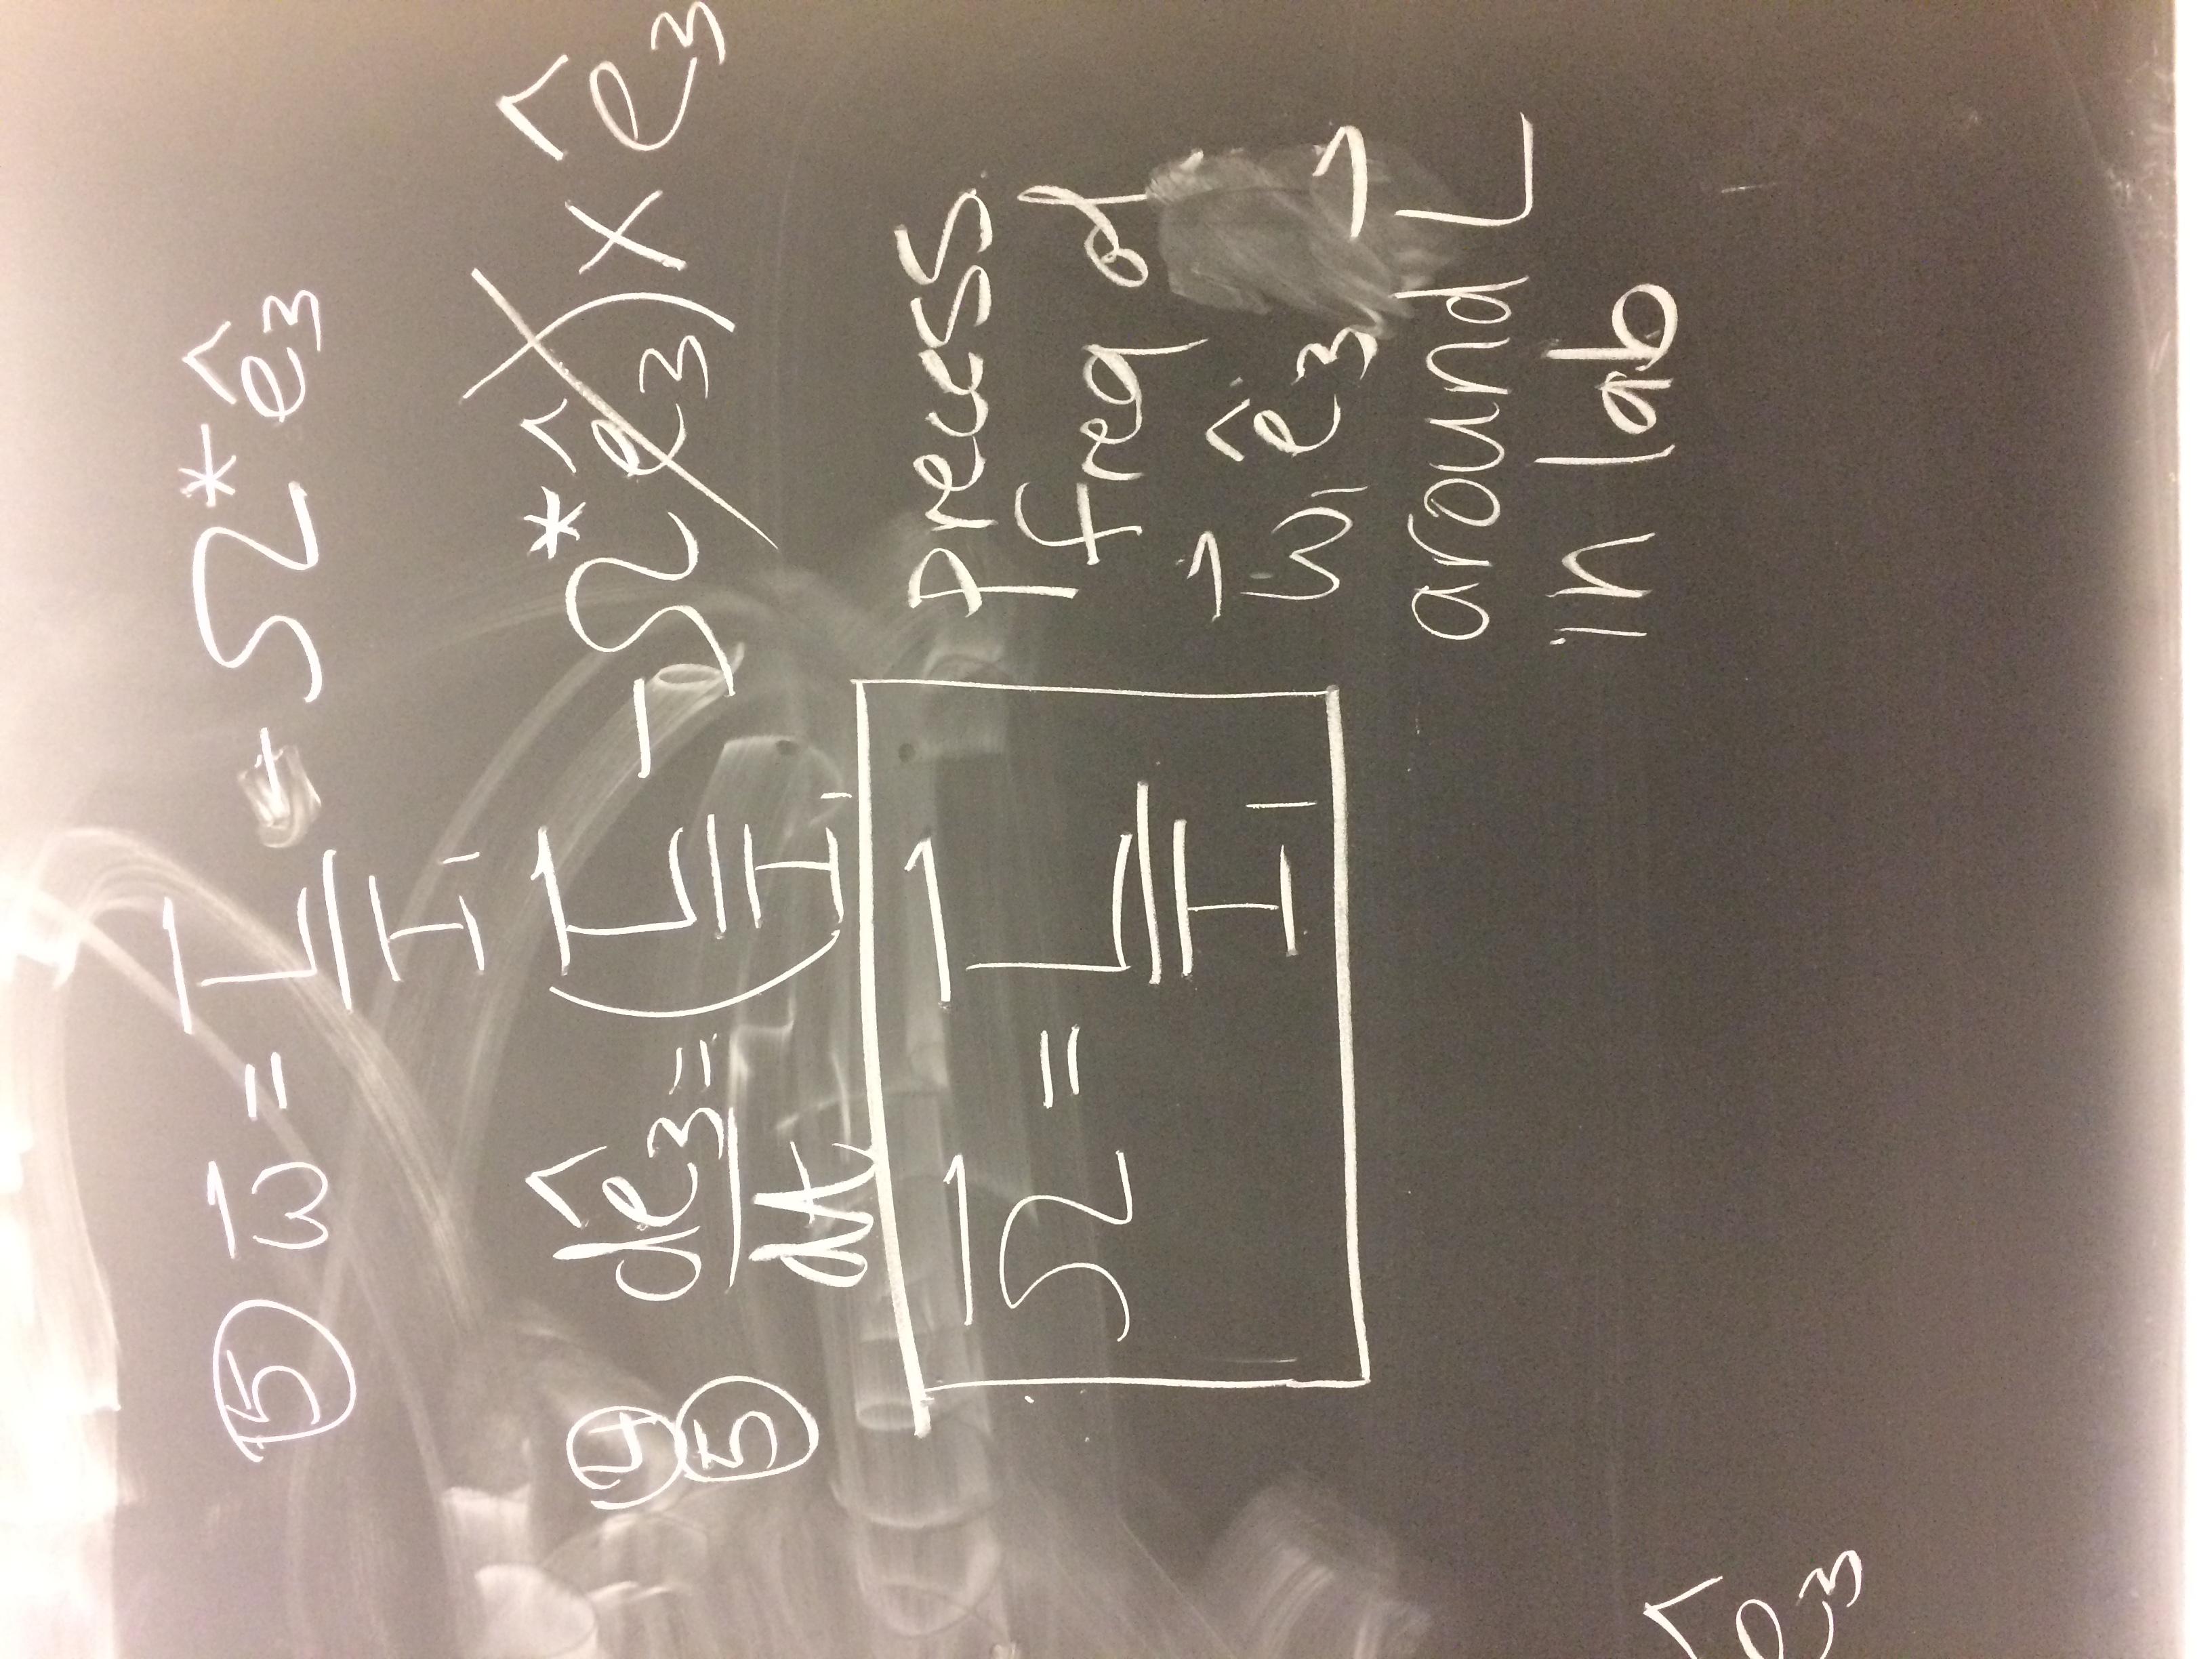 ⑤ ω⃗ = L⃗/I₁ - Ω* ê₃
④ ⑤ dê₃/dt = (L⃗/I₁ - Ω* ê₃) × ê₃
Ω⃗ = L⃗/I₁
precess
freq of
ω⃗, ê₃
around L⃗
in lab
ê₃